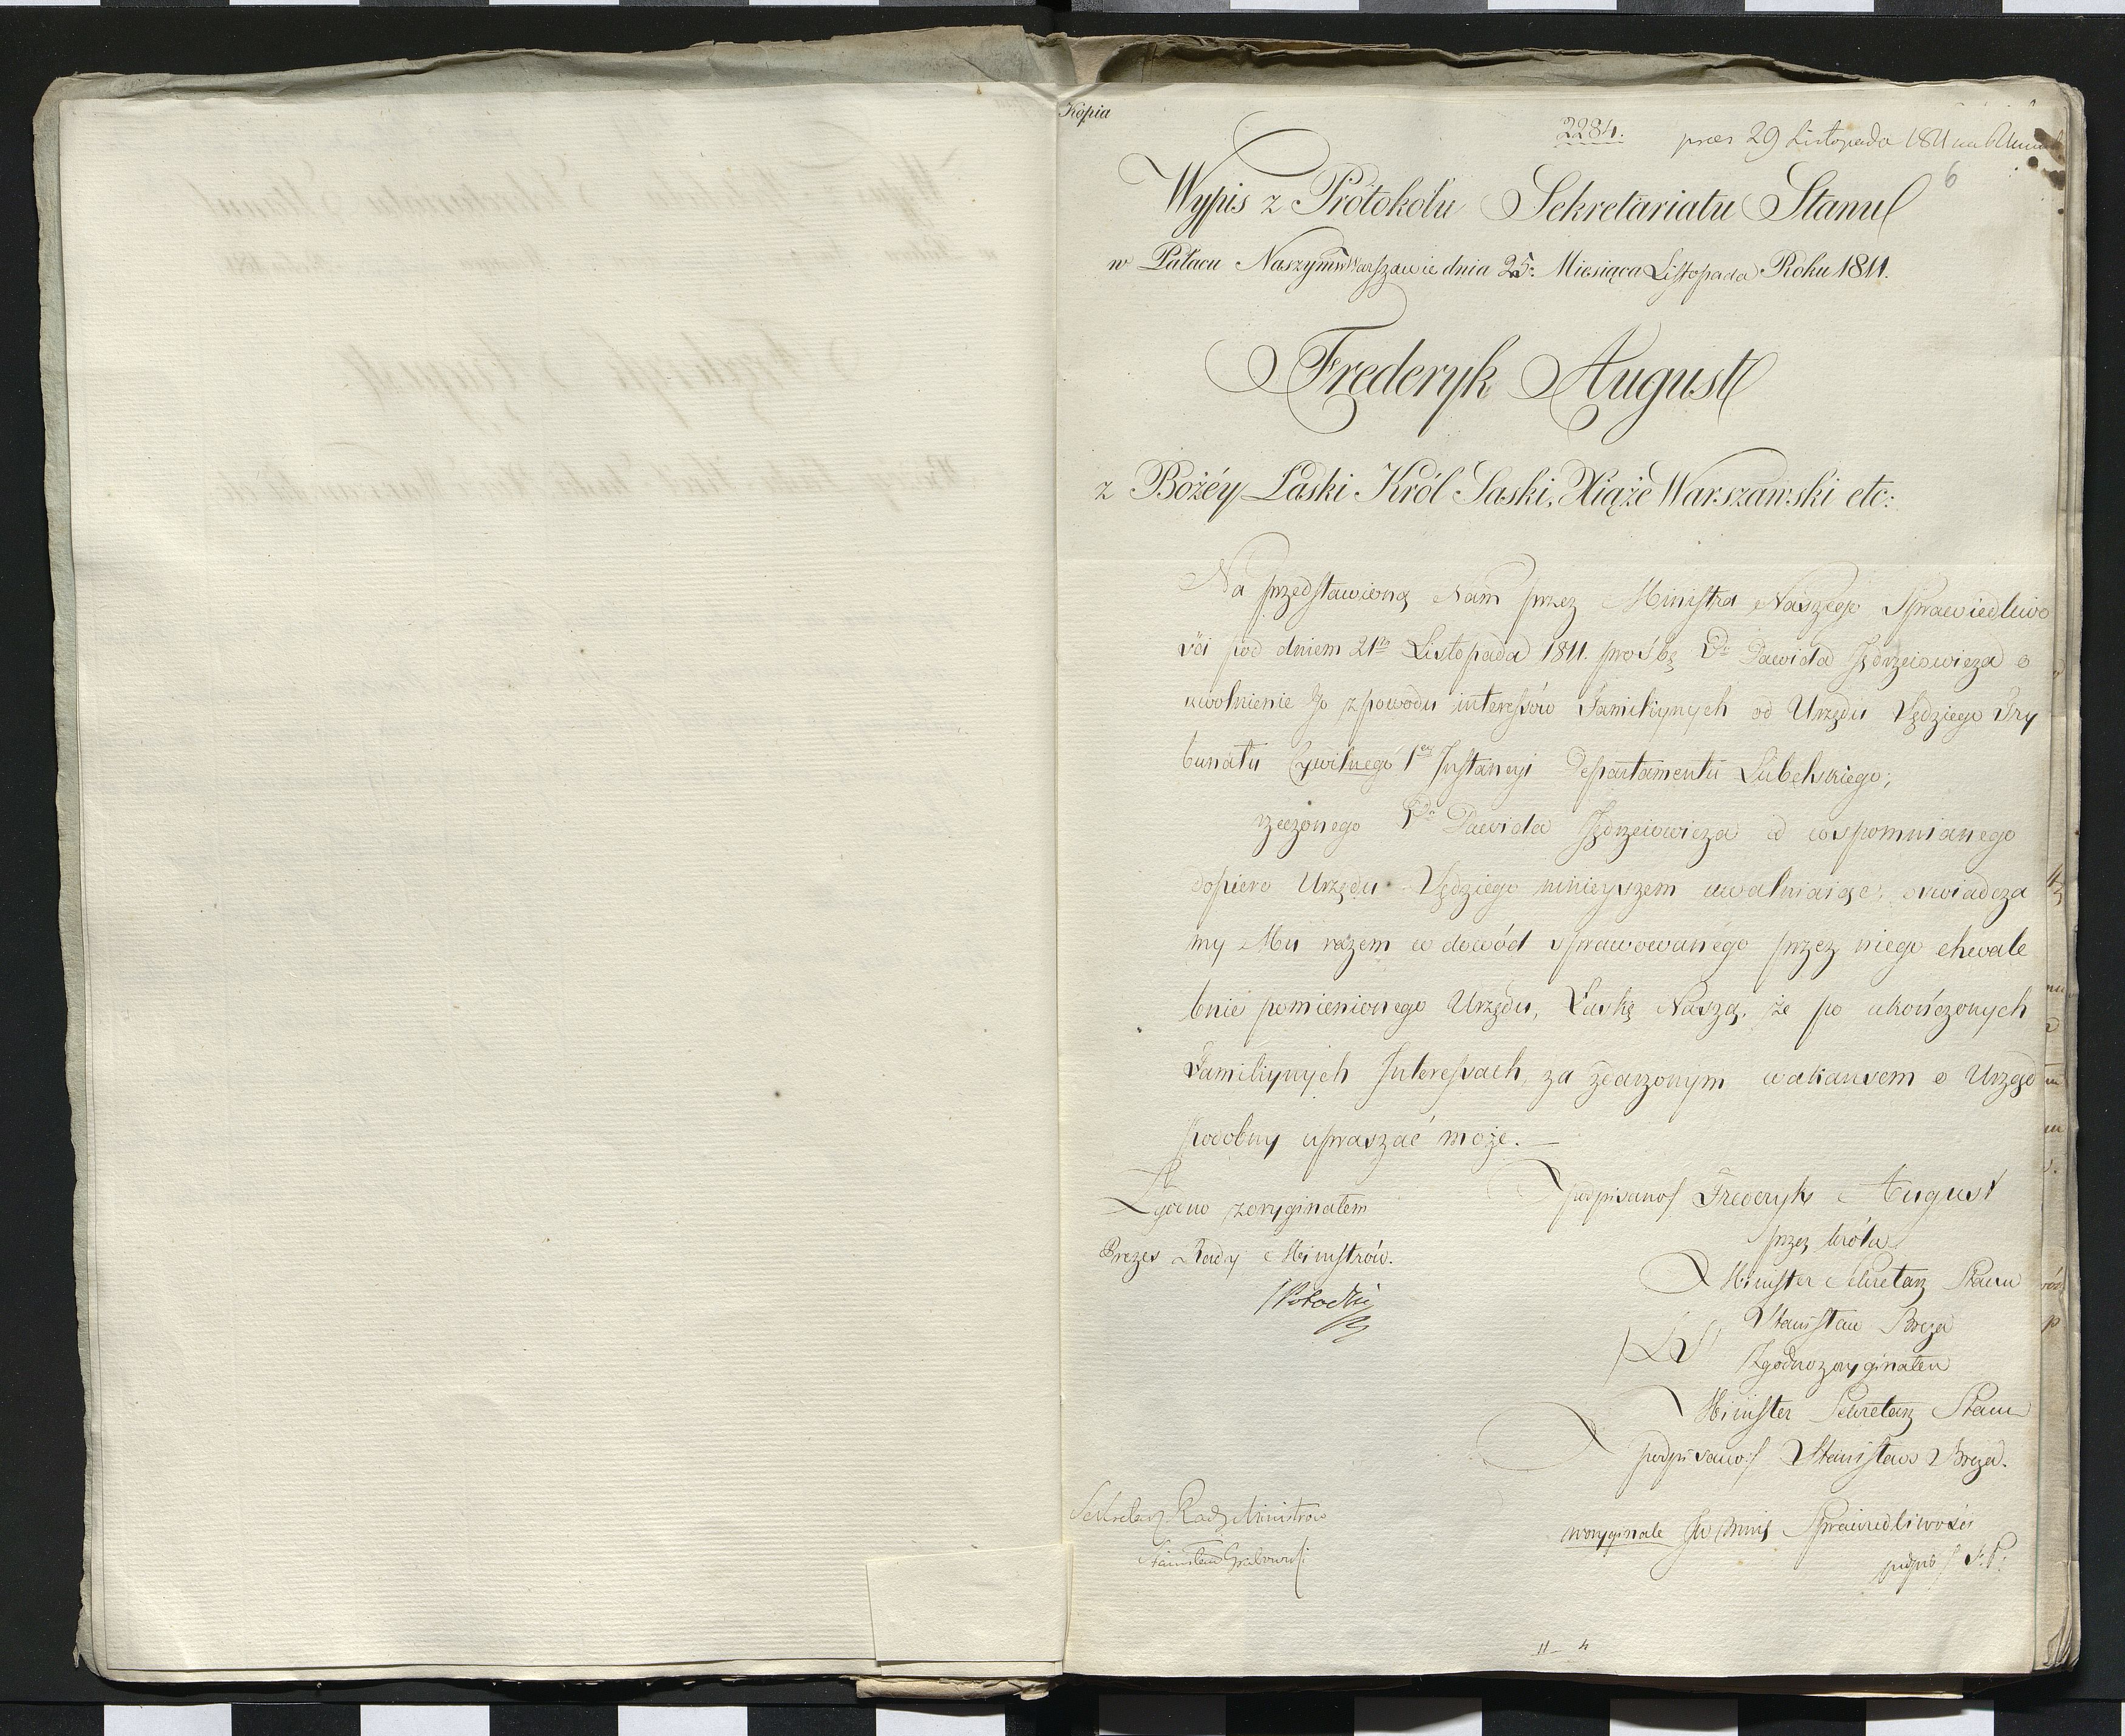 Kopia
2284. præs 29 Listopada 1811
6
Wypis z Protokołu Sekretariatu Stanu
w Pałacu Naszym w Warszawie dnia 25. Miesiąca Listopada Roku 1811.
Frederyk August
z Bożéy Łaski Król Saski, Xiąże Warszawski etc:
Na przedstawioną Nam przez Ministra Naszego Sprawiedliwo
ści pod dniem 21m Listopada 1811. prośbę Pa Dawida Jędrzeiowicza o
uwolnienie Go z powodu interessów Familiynych od Urzędu Sędziego Try
bunału Cywilnego 1ey Instancyi Departamentu Lubelskiego;
rzeczonego Pa Dawida Jędrzeiowicza od wspomnianego
dopiero Urzędu Sędziego ninieyszem uwalniaiąc, oswiadcza
my Mu razem w dowód sprawowanego przez niego chwale
bnie pomienionego Urzędu, Łaskę Naszą, że po ukończonych
Familiynych Interessach, za zdarzonym wakansem o Urząd
podobny upraszać może. —
Zgodno z oryginałem
Prezes Rady Ministrów.
Potocki
podpisano/ Frederyk August
przez Króla
Minister Sekretarz Stanu
Stanisław Breza
LS
Zgodno z oryginałem
Minister Sekretarz Stanu
podpisano/ Stanisław Breza.
Sekretarz Rady Ministrów
Stanisław Grabowski
w oryginale JW Minis Sprawiedliwości
podpis
11 4